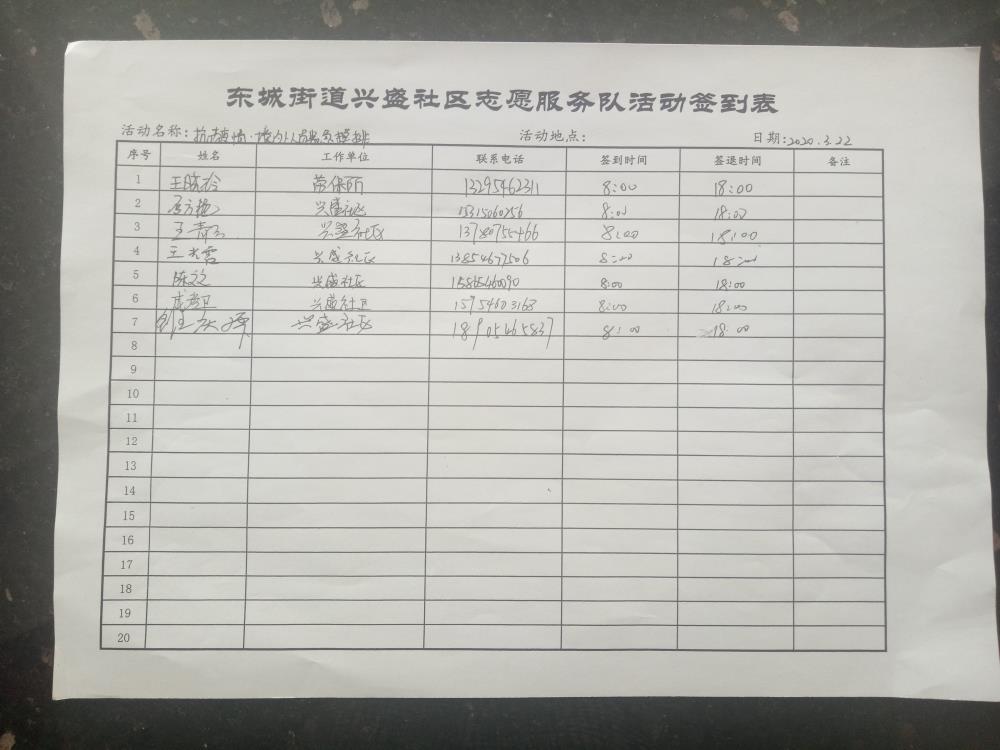 东城街道兴盛社区志愿服务队活动签到表
活动名称：抗疫情·境外人员 摸排 活动地点： 日期：2020.3.22
序号 姓名 工作单位 联系电话 签到时间 签退时间 备注
1 王晓玲 劳保所 13295462311 8:00 18:00
2 兴盛社区 15315060256 8:00 18:00
3 王青 兴盛社区 13780755466 8:00 18:00
4 王 兴盛社区 13854677506 8:00 18:00
5 陈文 兴盛社区 15865460090 8:00 18:00
6 兴盛社区 15954603168 8:00 18:00
7 兴盛社区 18905465837 8:00 18:00
8
9
10
11
12
13
14
15
16
17
18
19
20